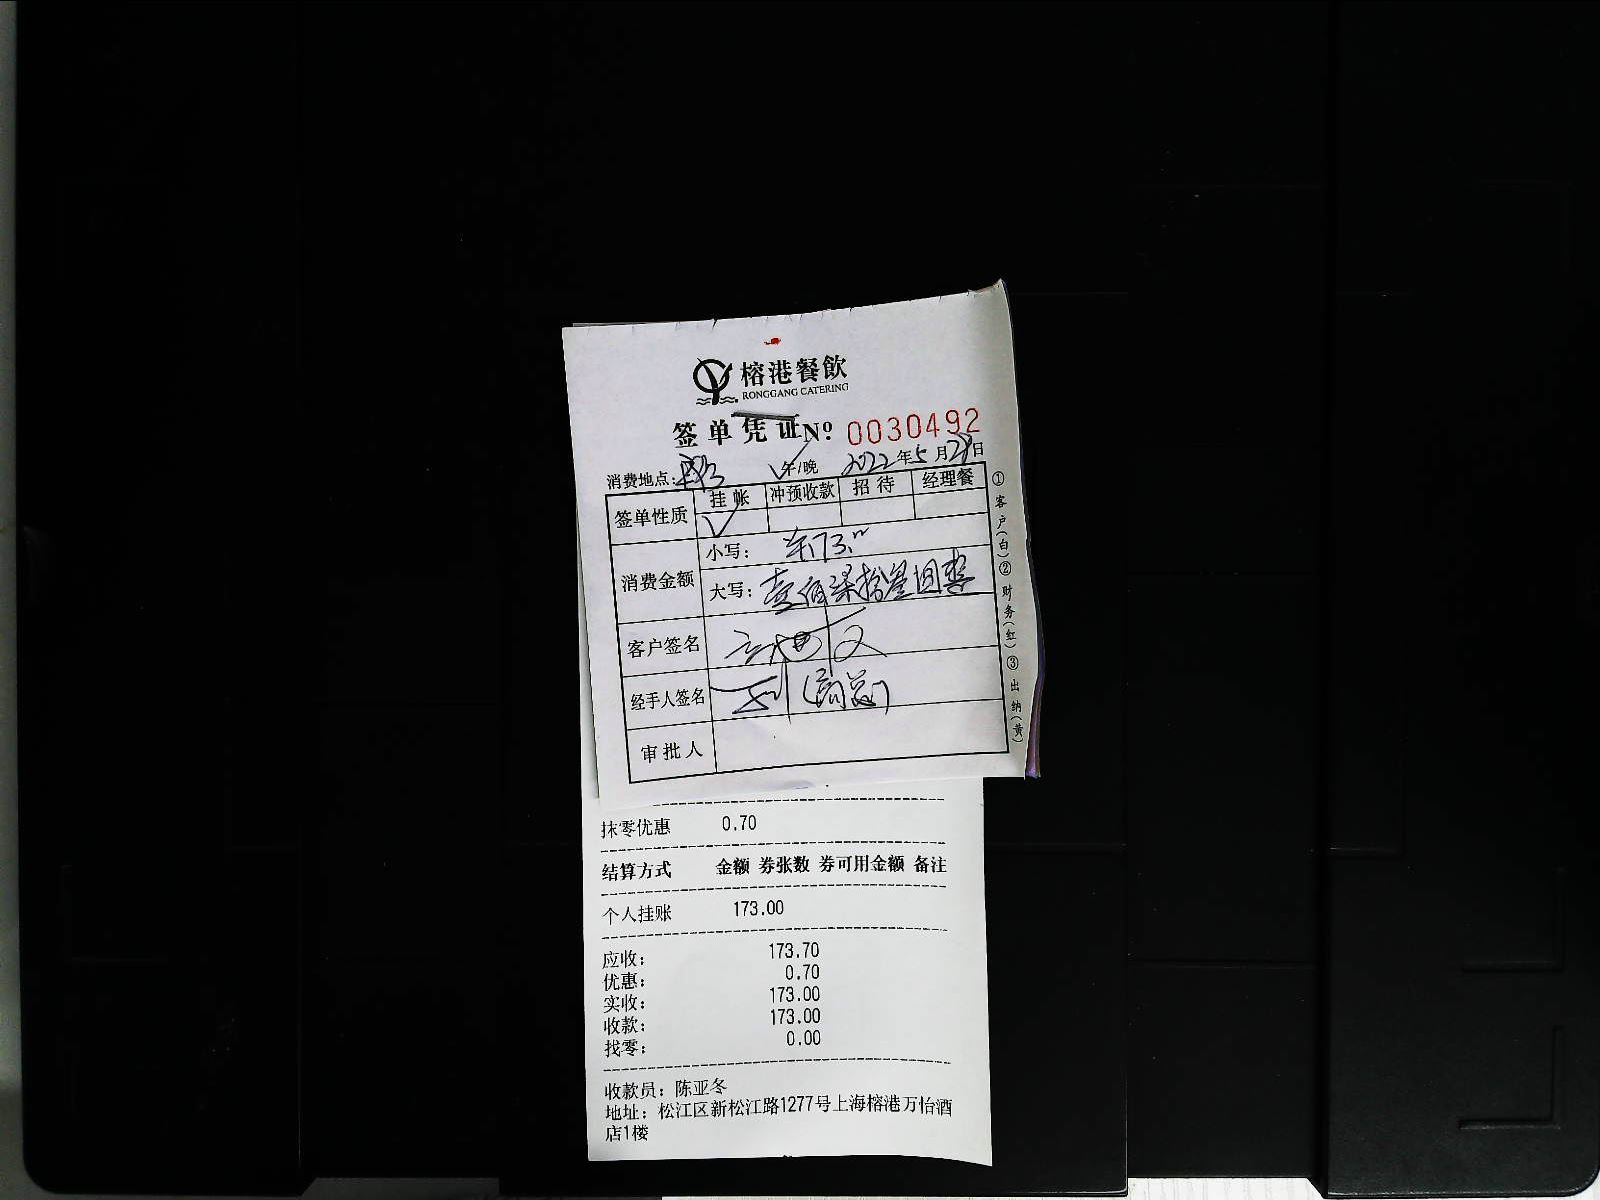 榕港餐飲
RONGGANG CATERING
签单凭证 № 0030492
消费地点: 午/晚 2022年5月28日
签单性质 挂帐 冲预收款 招待 经理餐
√
消费金额 小写: ¥173.00
大写: 壹佰柒拾叁圆整
客户签名
经手人签名
审批人
①客户(白)②财务(红)③出纳(黄)
抹零优惠 0.70
结算方式 金额 券张数 券可用金额 备注
个人挂账 173.00
应收: 173.70
优惠: 0.70
实收: 173.00
收款: 173.00
找零: 0.00
收款员: 陈亚冬
地址: 松江区新松江路1277号上海榕港万怡酒
店1楼